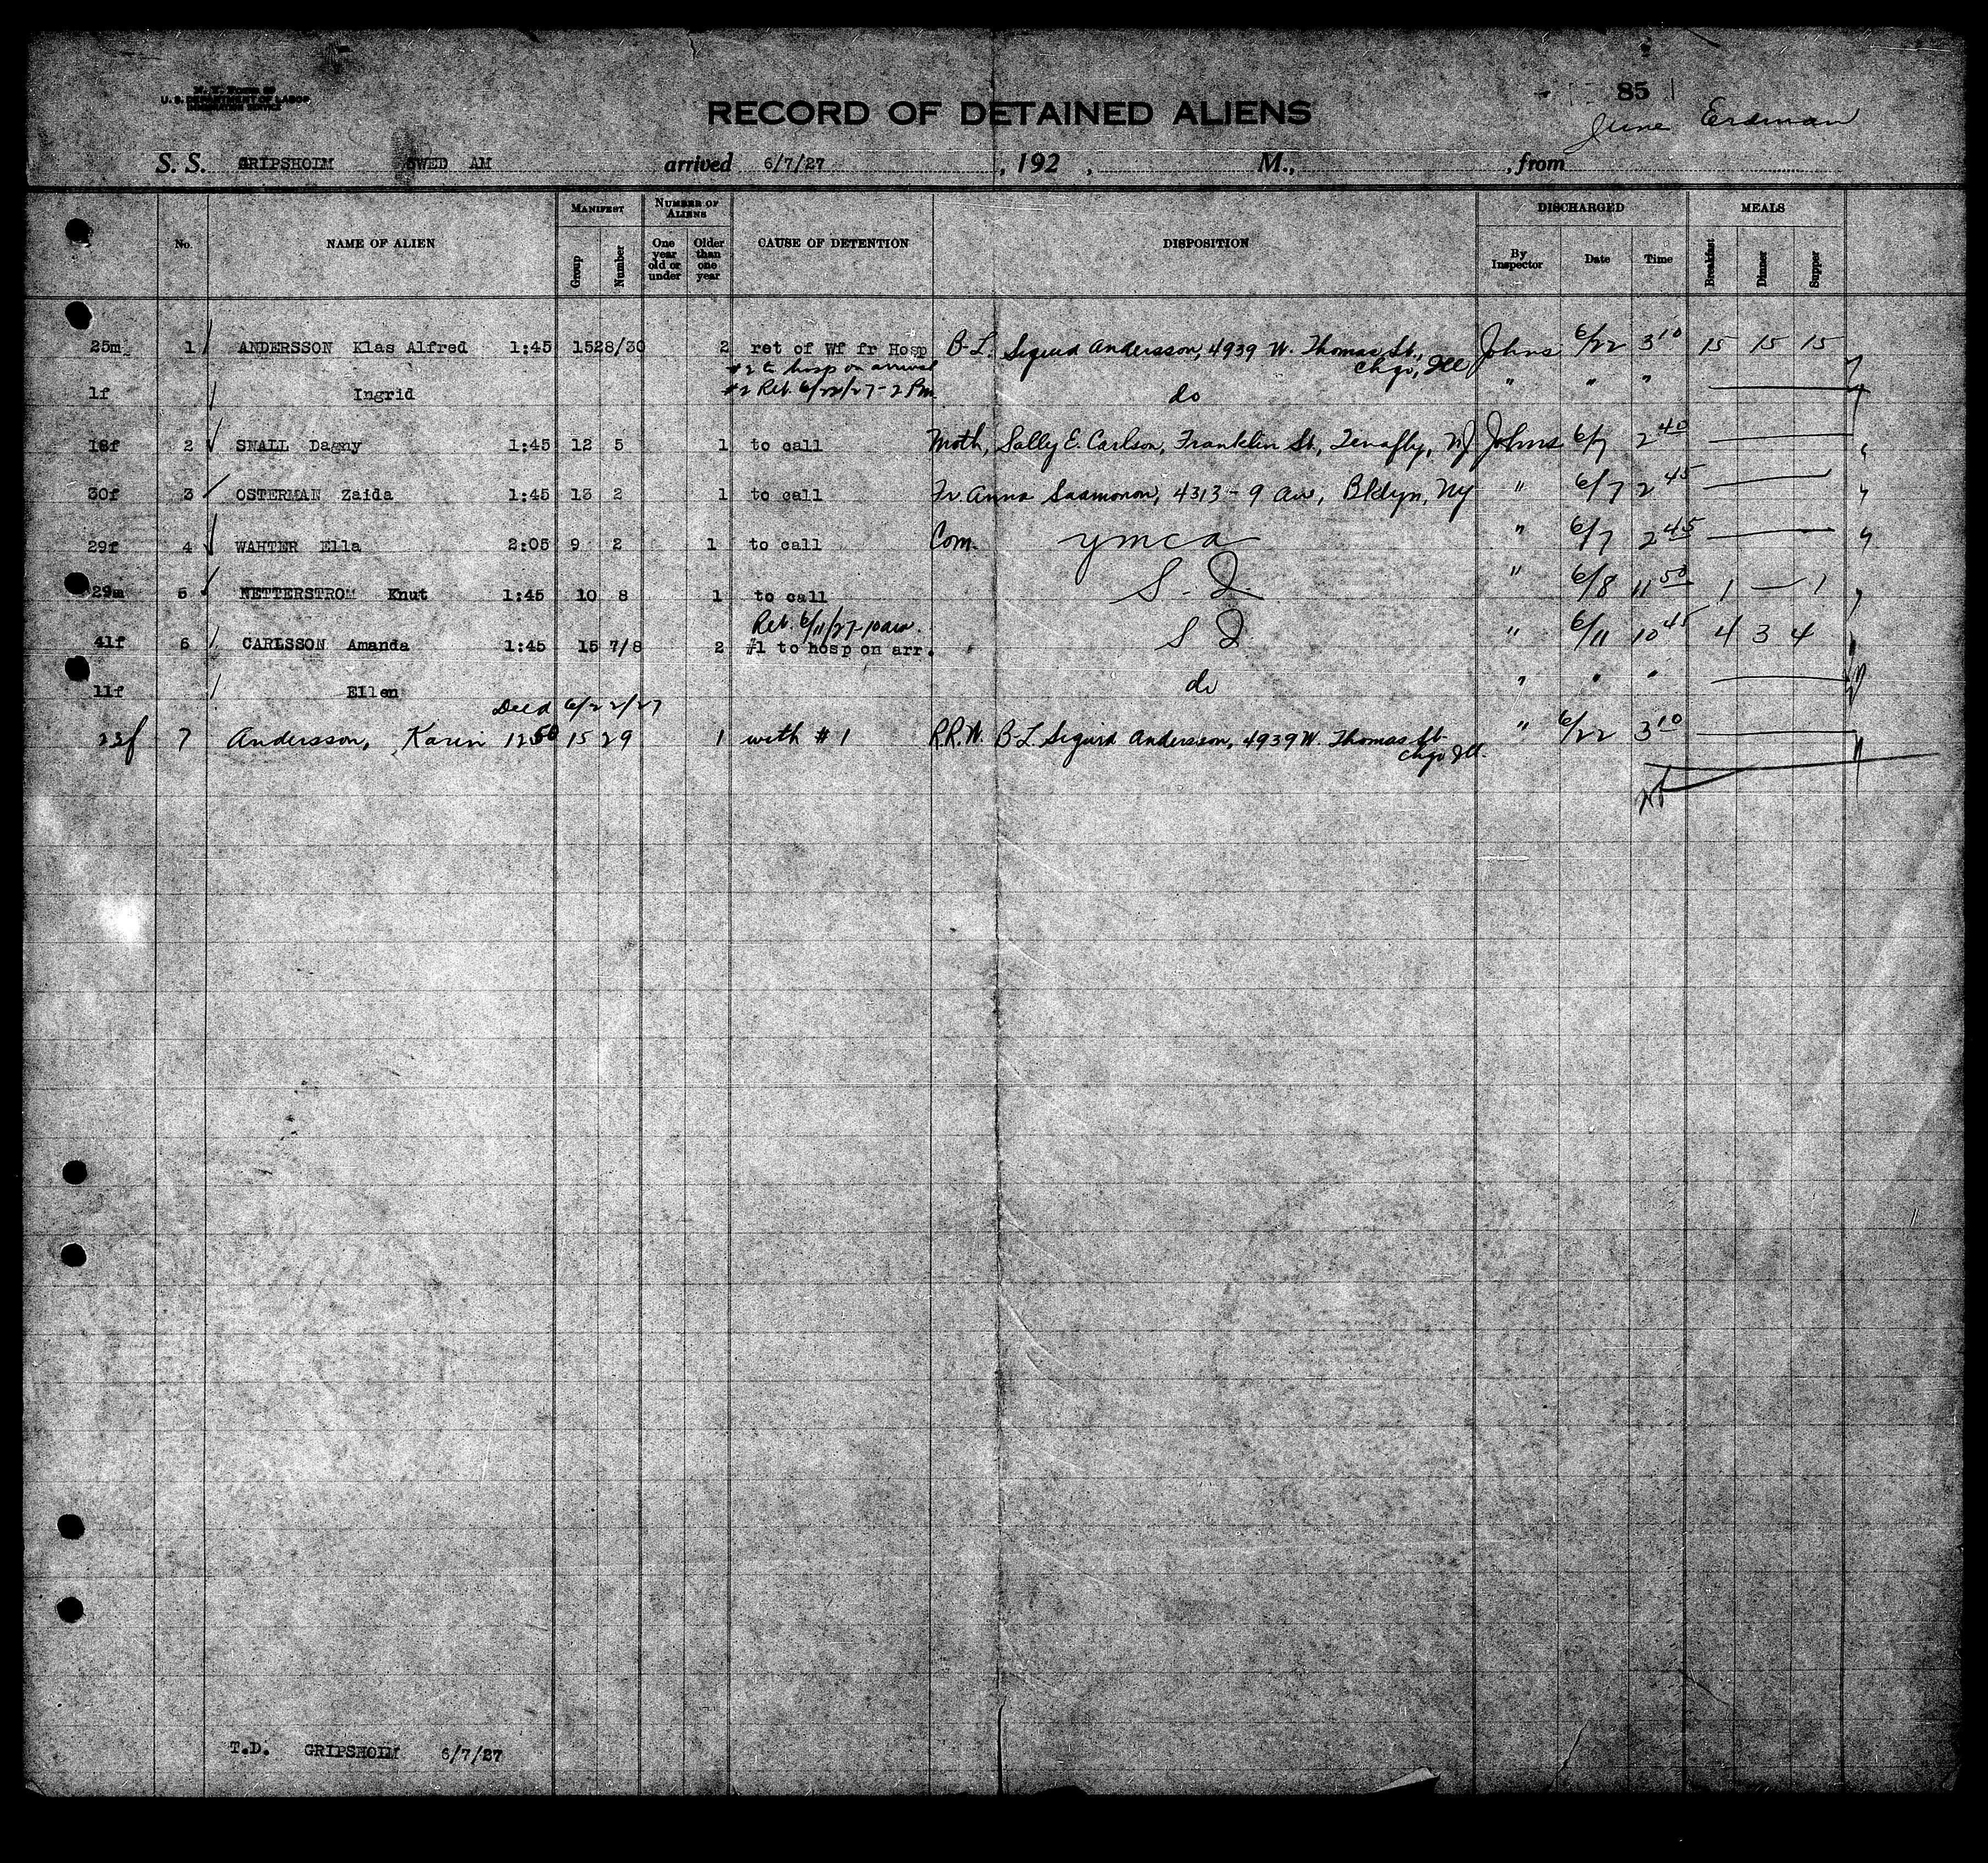 U. S. DEPARTMENT OF LABOR
85
RECORD OF DETAINED ALIENS
June Erdman
S. S. GRIPSHOIM SWED AM arrived 6/7/27 , 192 , M., , from
MANIFEST NUMBER OF ALIENS DISCHARGED MEALS
No. NAME OF ALIEN Group Number One year old or under Older than one year CAUSE OF DETENTION DISPOSITION By Inspector Date Time Breakfast Dinner Supper
25m 1 ANDERSSON Klas Alfred 1:45 15 28/30 2 ret of Wf fr Hosp B-L. Sigurd Andersson, 4939 W. Thomas St., Johns 6/22 3 10 15 15 15
#2 to hosp on arrival Chgo, Ill
#2 Ret. 6/22/27-2 Pm.
1f Ingrid do " " "
18f 2 SMALL Dagny 1:45 12 5 1 to call Moth, Sally E. Carlson, Franklin St., Tenafly, NJ Johns 6/7 2 40
30f 3 OSTERMAN Zaida 1:45 13 2 1 to call Fr Anna Saamonon, 4313 - 9 Av, Bklyn, Ny " 6/7 2 45
29f 4 WAHTER Ella 2:05 9 2 1 to call Com. ymca " 6/7 2 45
29m 5 NETTERSTROM Knut 1:45 10 8 1 to call S. I. " 6/8 11 50 1 — 1
Ret. 6/11/27-10am.
41f 6 CARLSSON Amanda 1:45 15 7/8 2 #1 to hosp on arr. S I " 6/11 10 45 4 3 4
11f Ellen do " " "
Decd 6/22/27
23f 7 Andersson, Karin 12 50 15 29 1 with #1 R.R.W. B-L. Sigurd Andersson, 4939 W. Thomas St. " 6/22 3 10
Chgo Ill.
T.D. GRIPSHOIM 6/7/27